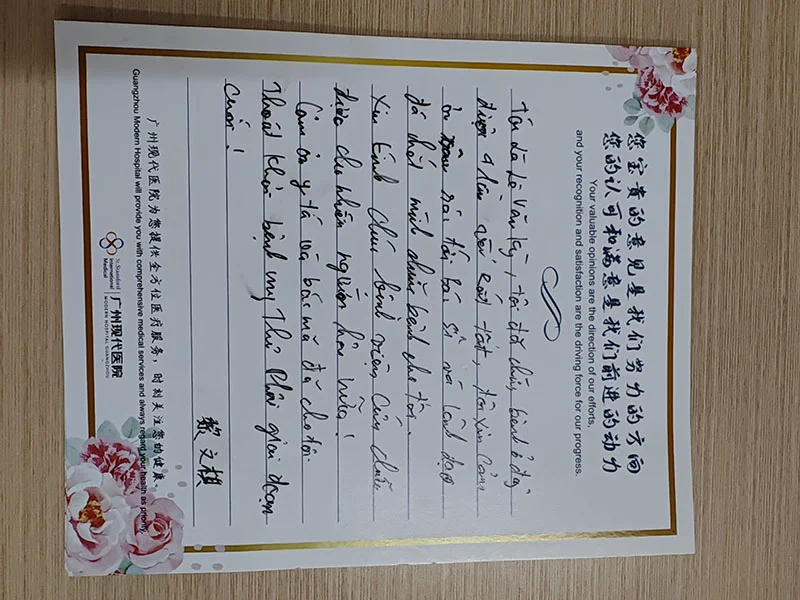 您宝贵的意见是我们努力的方向
您的认可和满意是我们前进的动力
Your valuable opinions are the direction of our efforts,
and your recognition and satisfaction are the driving force for our progress.
Tôi là Lê Văn Kỳ, tôi đã chữa bệnh ở đây
được 9 lần rất tốt, tôi xin cảm
ơn tới bác sĩ và lãnh đạo
đã chữa bệnh cho tôi
Xin kính chúc bệnh viện cứu chữa
được cho nhiều người hơn nữa!
Cảm ơn y tá và bác mà đã cho tôi
Thoát khỏi bệnh ung thư phổi giai đoạn
cuối!
黎文棋
广州现代医院为您提供全方位医疗服务，时刻关注您的健康。
Guangzhou Modern Hospital will provide you with comprehensive medical services and always regard your health as priority.
St. Stamford International Medical
广州现代医院
MODERN HOSPITAL GUANGZHOU